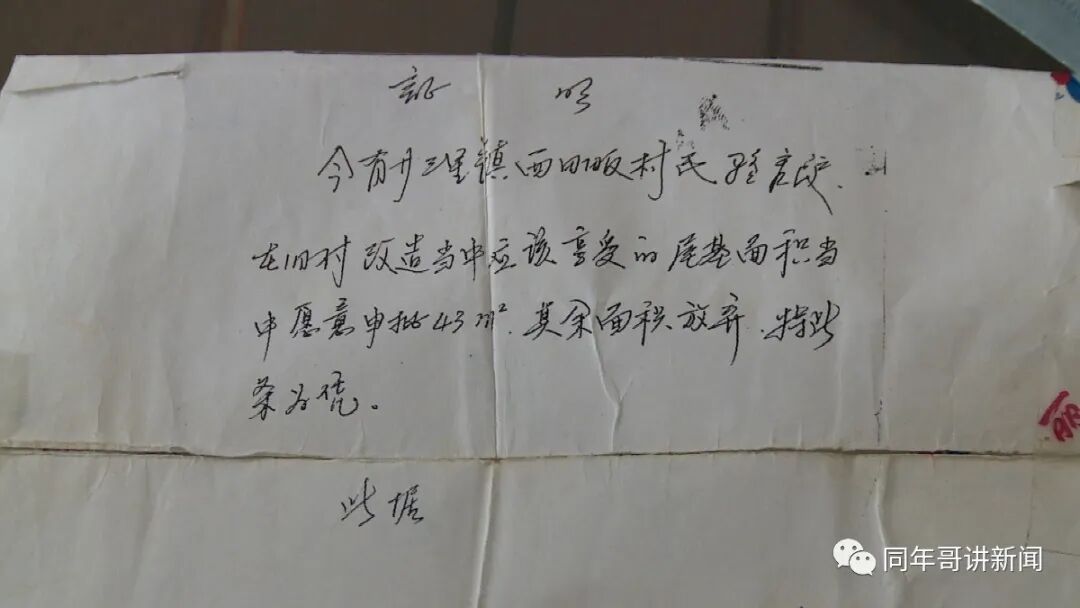 证 明
今有廿三里镇西田畈村民
在旧村改造当中应该享受的屋基面积当
中愿意申批43m².其余面积放弃.特此
条为凭。
此据
AIR
同年哥讲新闻